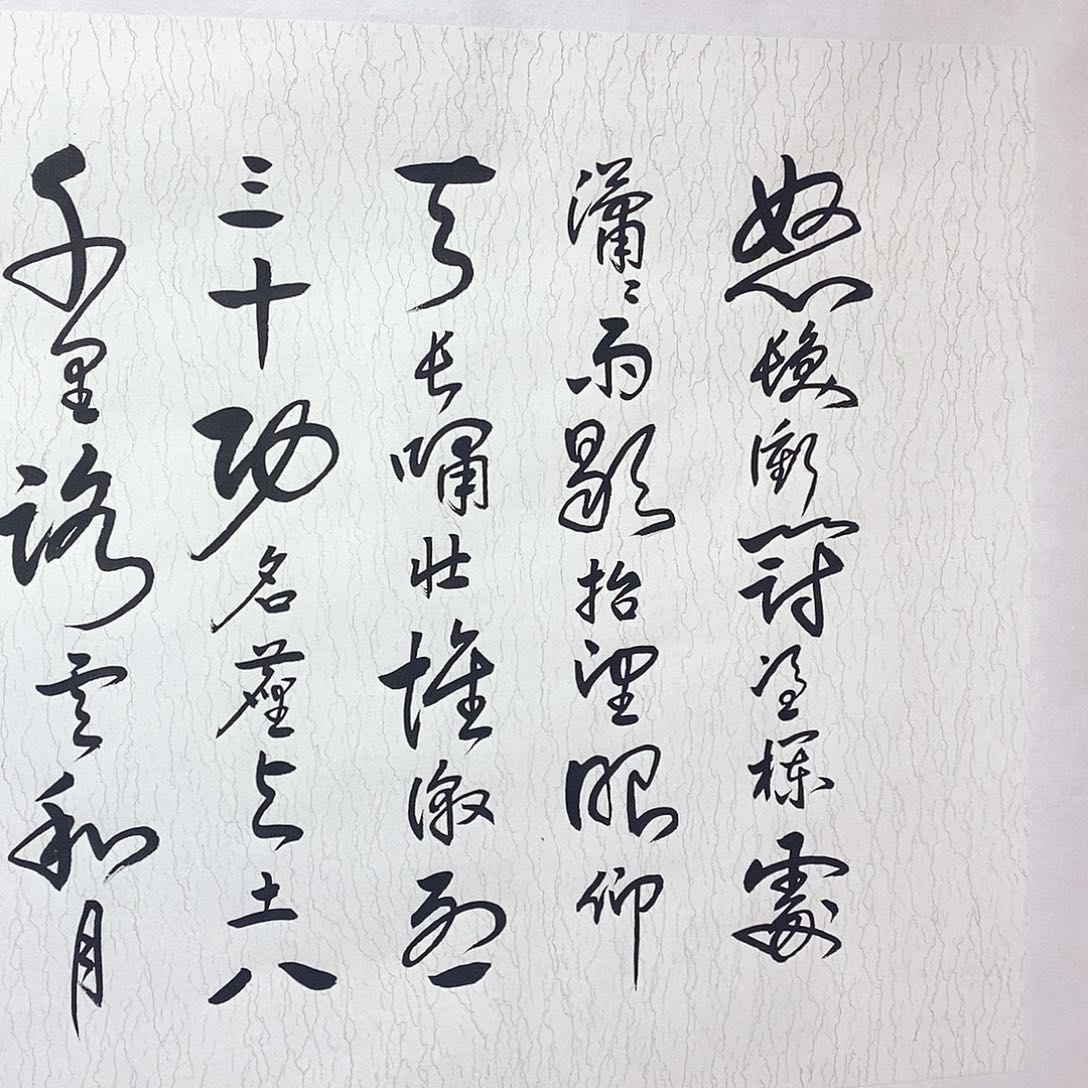 怒髮衝冠凭欄處
瀟瀟雨歇抬望眼仰
天長嘯壯懷激烈
三十功名塵與土八
千里路雲和月